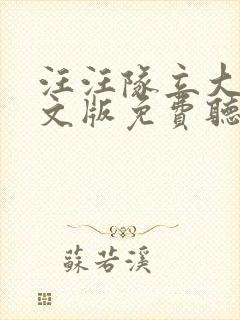 汪汪隊立大
文版免費聽
蘇若溪